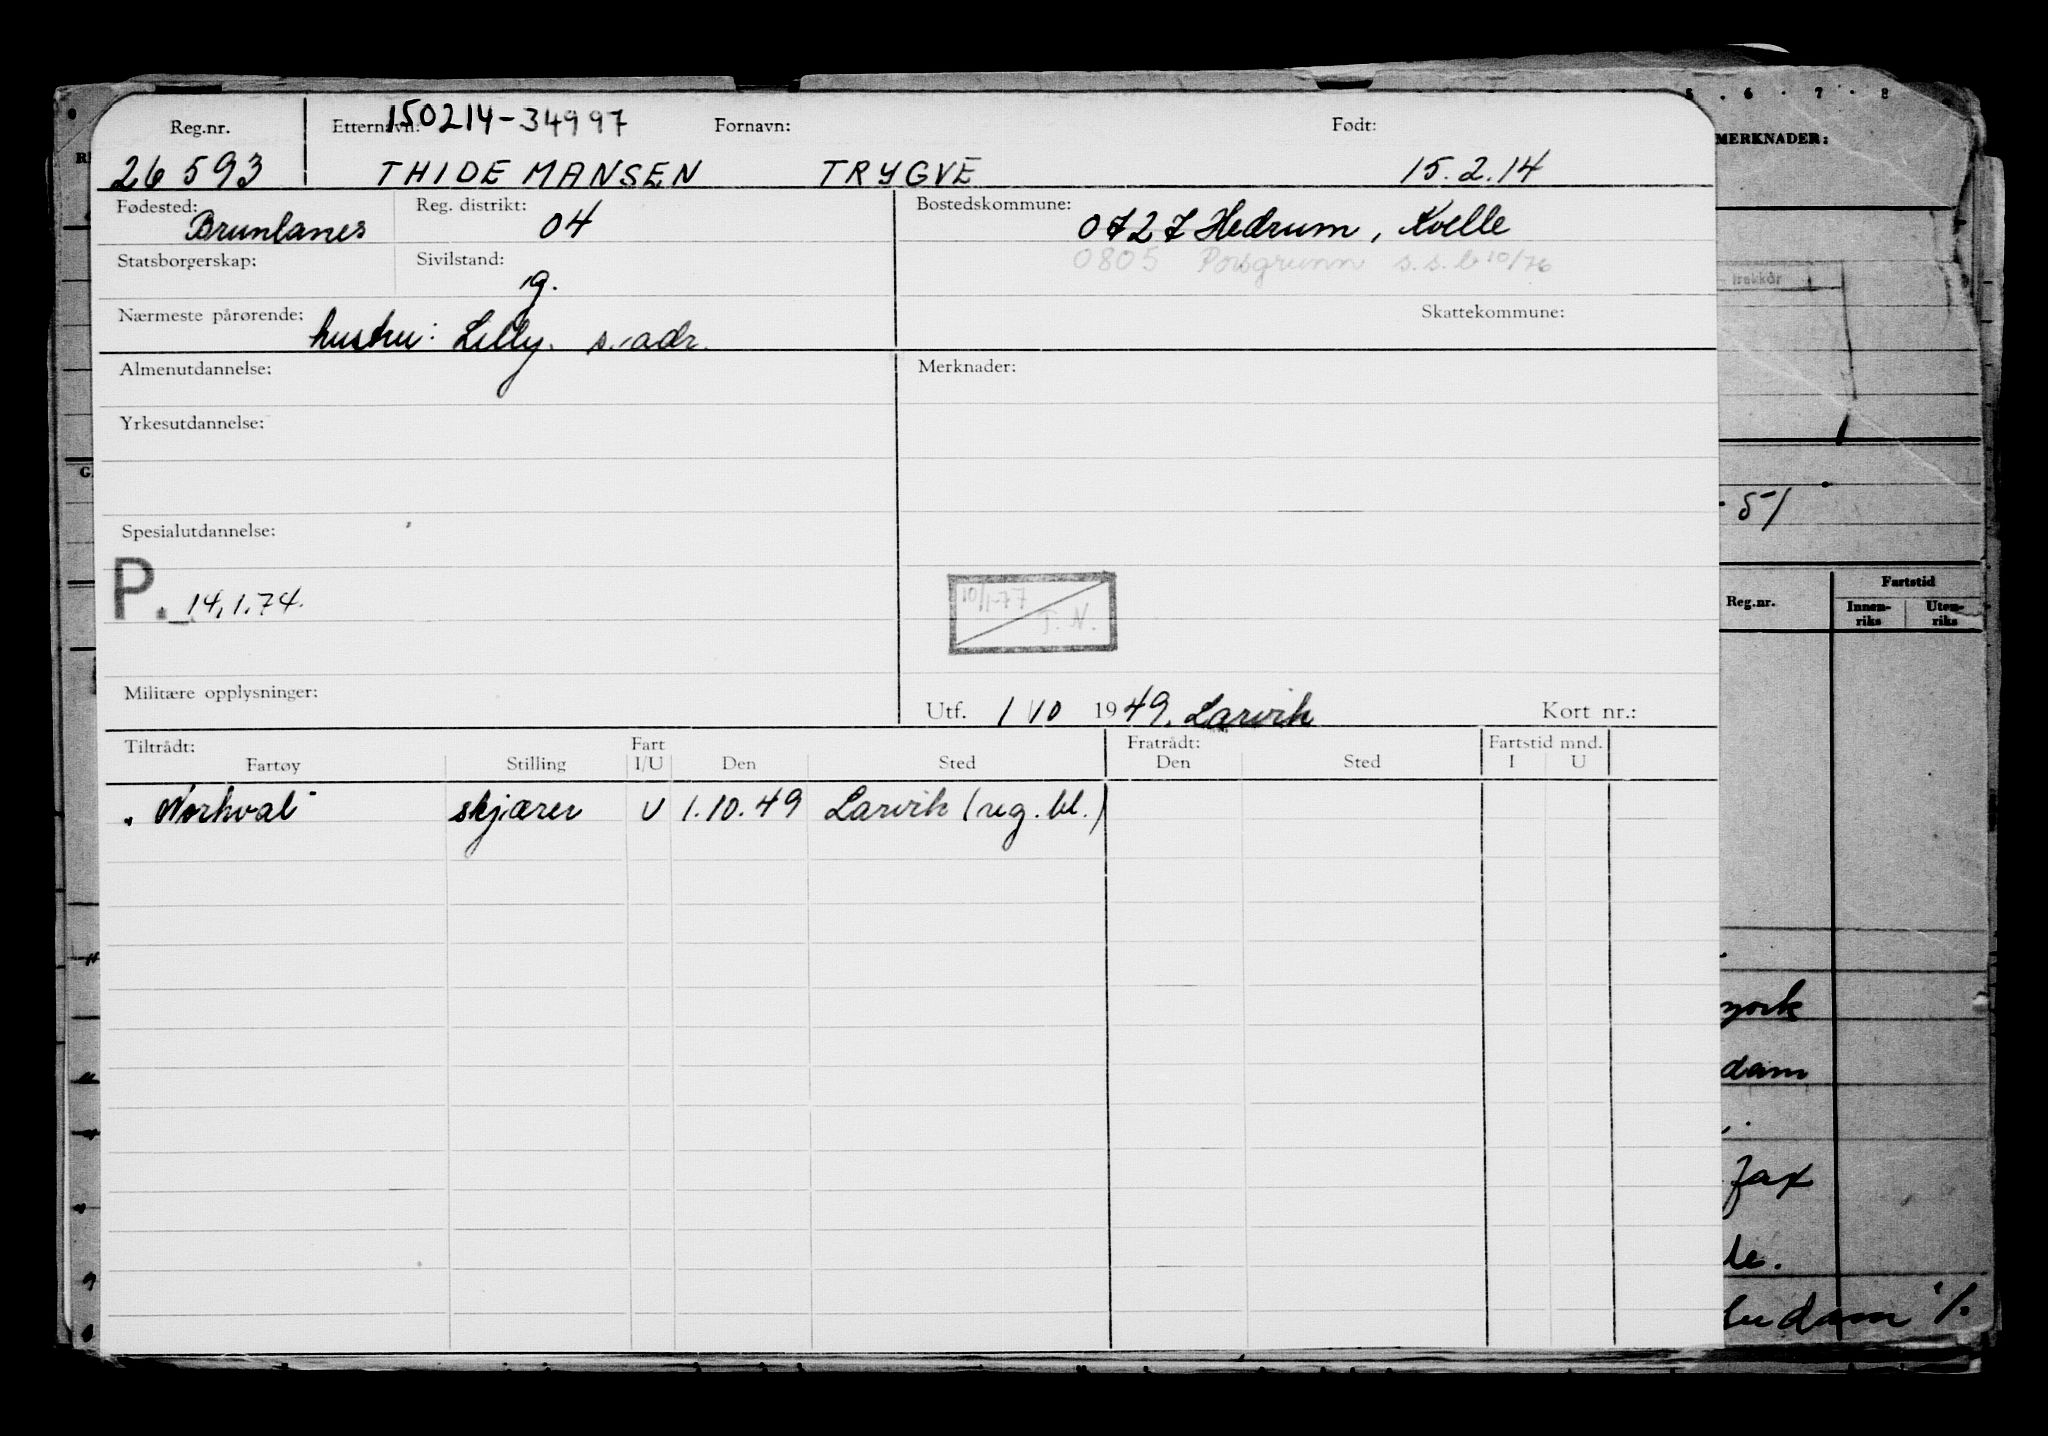 5 . 6 . 7 . 8
MERKNADER:
Reg.nr. Etternavn: 150214-34997 Fornavn: Født:
26 593 THIDEMANSEN TRYGVE 15.2.14
Fødested: Brunlanes Reg. distrikt: 04 Bostedskommune: 0727 Hedrum, Kvelle
Statsborgerskap: Sivilstand: g. 0805 Porsgrunn s.s.b 10/76
trekkør
Nærmeste pårørende: hustru: Lilly. s. adr. Skattekommune:
Almenutdannelse: Merknader:
Yrkesutdannelse:
-51
Spesialutdannelse:
P. 14.1.74. 10/1-77 T.N.
Reg.nr. Fartstid
Innenriks Utenriks
Militære opplysninger: Utf. 1/10 1949. Larvik Kort nr.:
Tiltrådt: Fart Fratrådt: Fartstid mnd.
Fartøy Stilling I/U Den Sted Den Sted I U
"Norhval" skjærer U 1.10.49 Larvik (reg. bl.)
york
dam
Jax
de.
dam %.